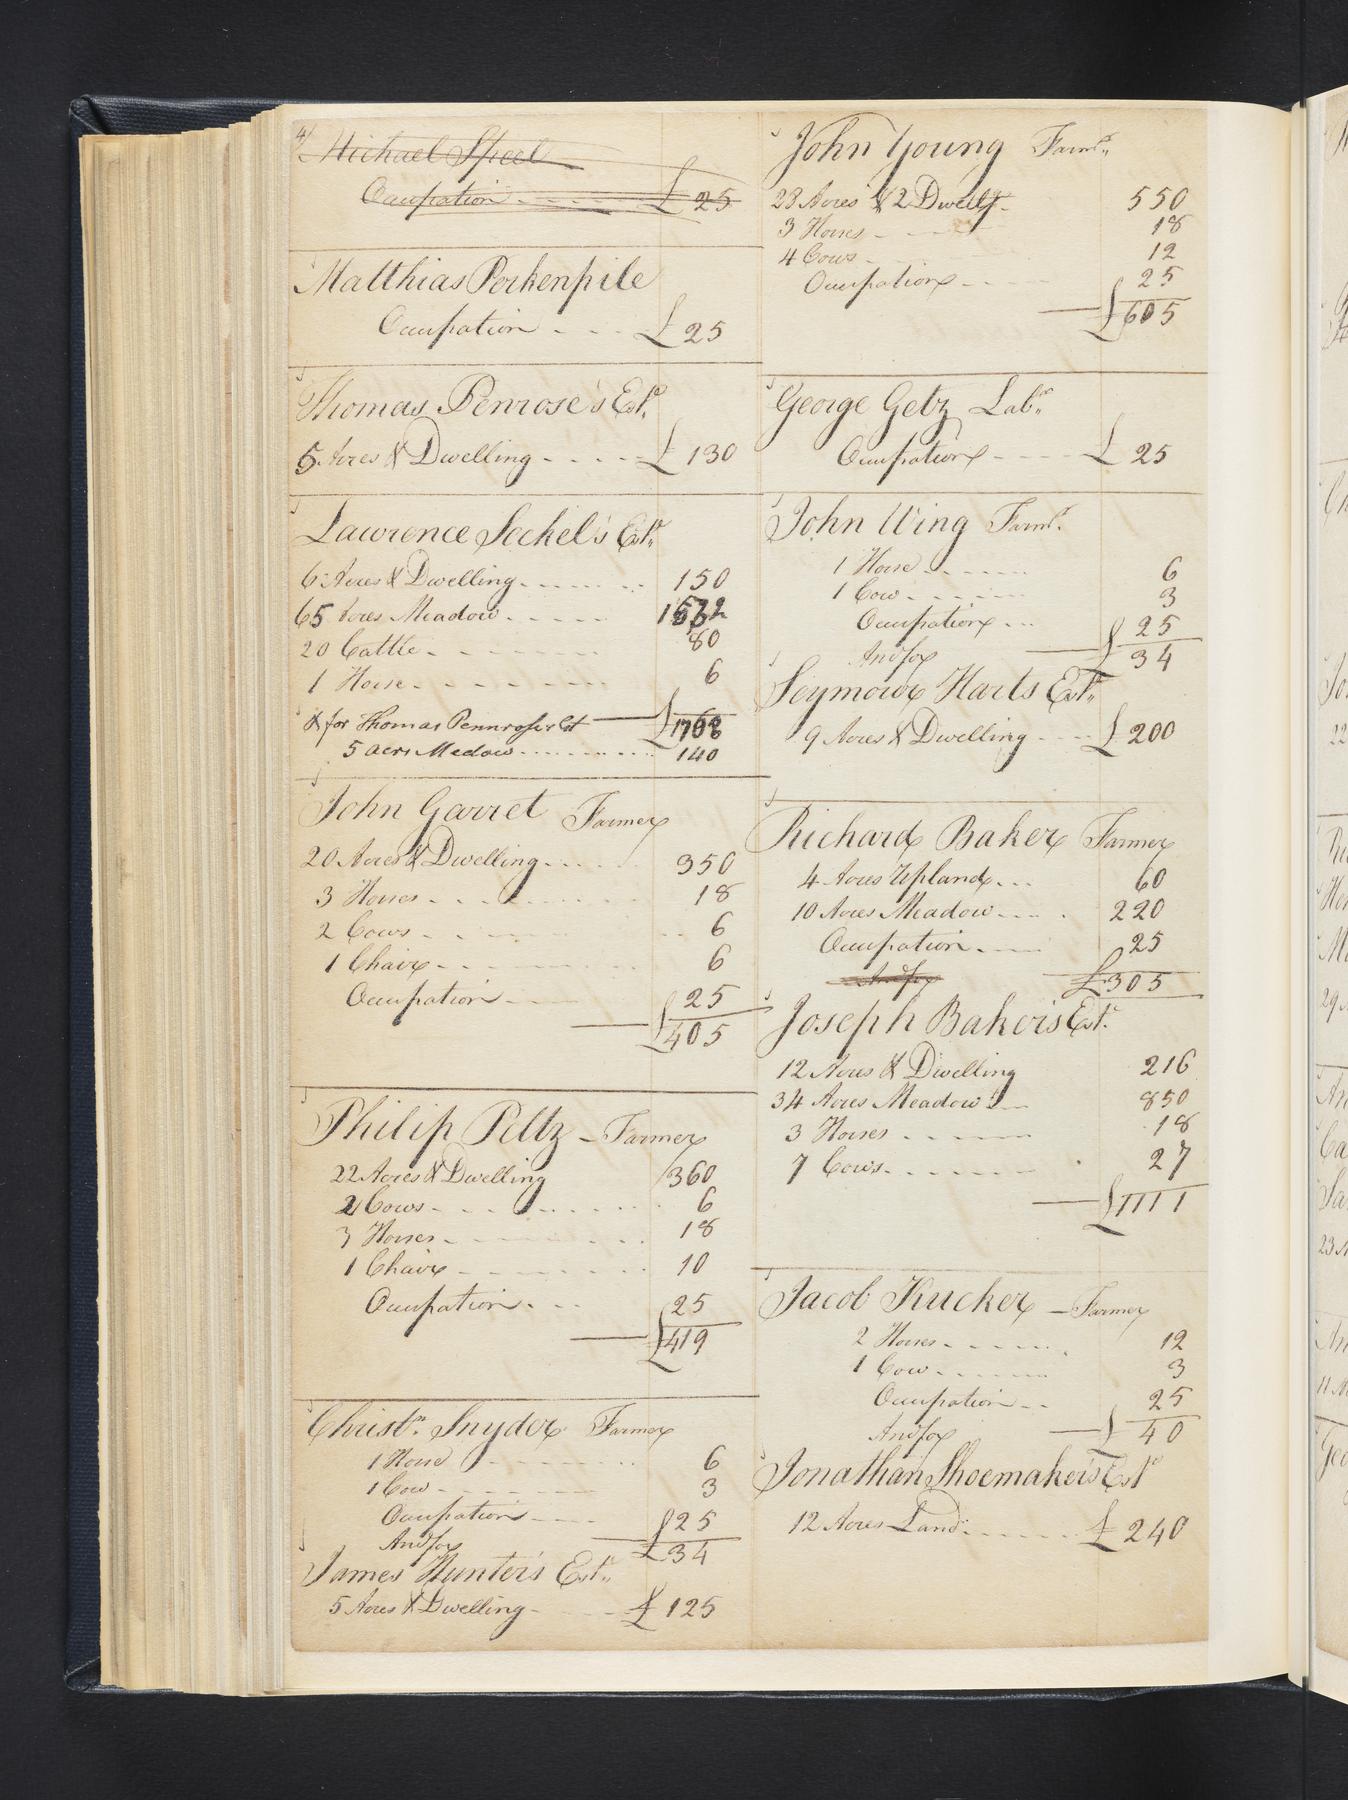 4
Michael Speel
Occupation £ 25
Matthias Porkenpile
Occupation £ 25
Thomas Penrose's Est.
5 Acres & Dwelling £ 130
Lawrence Seckel's Est.
6 Acres & Dwelling 150
65 Acres Meadow 1532
20 Cattle 80
1 Horse 6
£ 1768
& for Thomas Pennrose Est
5 acrs Medow 140
John Garret Farmer
20 Acres & Dwelling 350
3 Horses 18
2 Cows 6
1 Chair 6
Occupation 25
£ 405
Philip Peltz Farmer
22 Acres & Dwelling 360
2 Cows 6
3 Horses 18
1 Chair 10
Occupation 25
£ 419
Christn. Snyder Farmer
1 Horse 6
1 Cow 3
Occupation 25
£ 34
And for
James Hunter's Est.
5 Acres & Dwelling £ 125
John Young Farmr.
28 Acres & 2 Dwellgs. 550
3 Horses 18
4 Cows 12
Occupation 25
£ 605
George Getz Labr.
Occupation £ 25
John Wing Farmr.
1 Horse 6
1 Cow 3
Occupation 25
£ 34
And for
Seymour Harts Est.
9 Acres & Dwelling £ 200
Richard Baker Farmer
4 Acres Upland 60
10 Acres Meadow 220
Occupation 25
£ 305
And for
Joseph Baker's Est.
12 Acres & Dwelling 216
34 Acres Meadow 850
3 Horses 18
7 Cows 27
£ 1111
Jacob Kucker Farmer
2 Horses 12
1 Cow 3
Occupation 25
£ 40
And for
Jonathan Shoemaker's Est
12 Acres Land £ 240